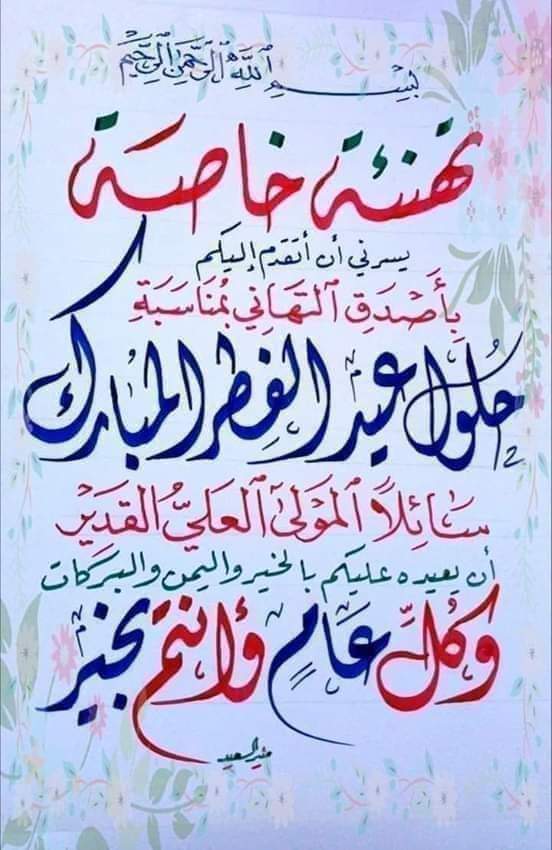 بِسْمِ ٱللَّهِ ٱلرَّحْمَٰنِ ٱلرَّحِيمِ
تهنئة خاصة
يسرني أن أتقدم إليكم
بِأَصْدَقِ ٱلتَهَانِي بمُنَاسَبَةِ
حُلول عيد الفِطر المبارك
سَائِلًا ٱلمَوْلَىٰ ٱلعَلِيُّ القَدِيْرِ
أن يعيده عليكم بالخير واليمن والبركات
وَكُلِّ عَامٍ وأنتم بخير